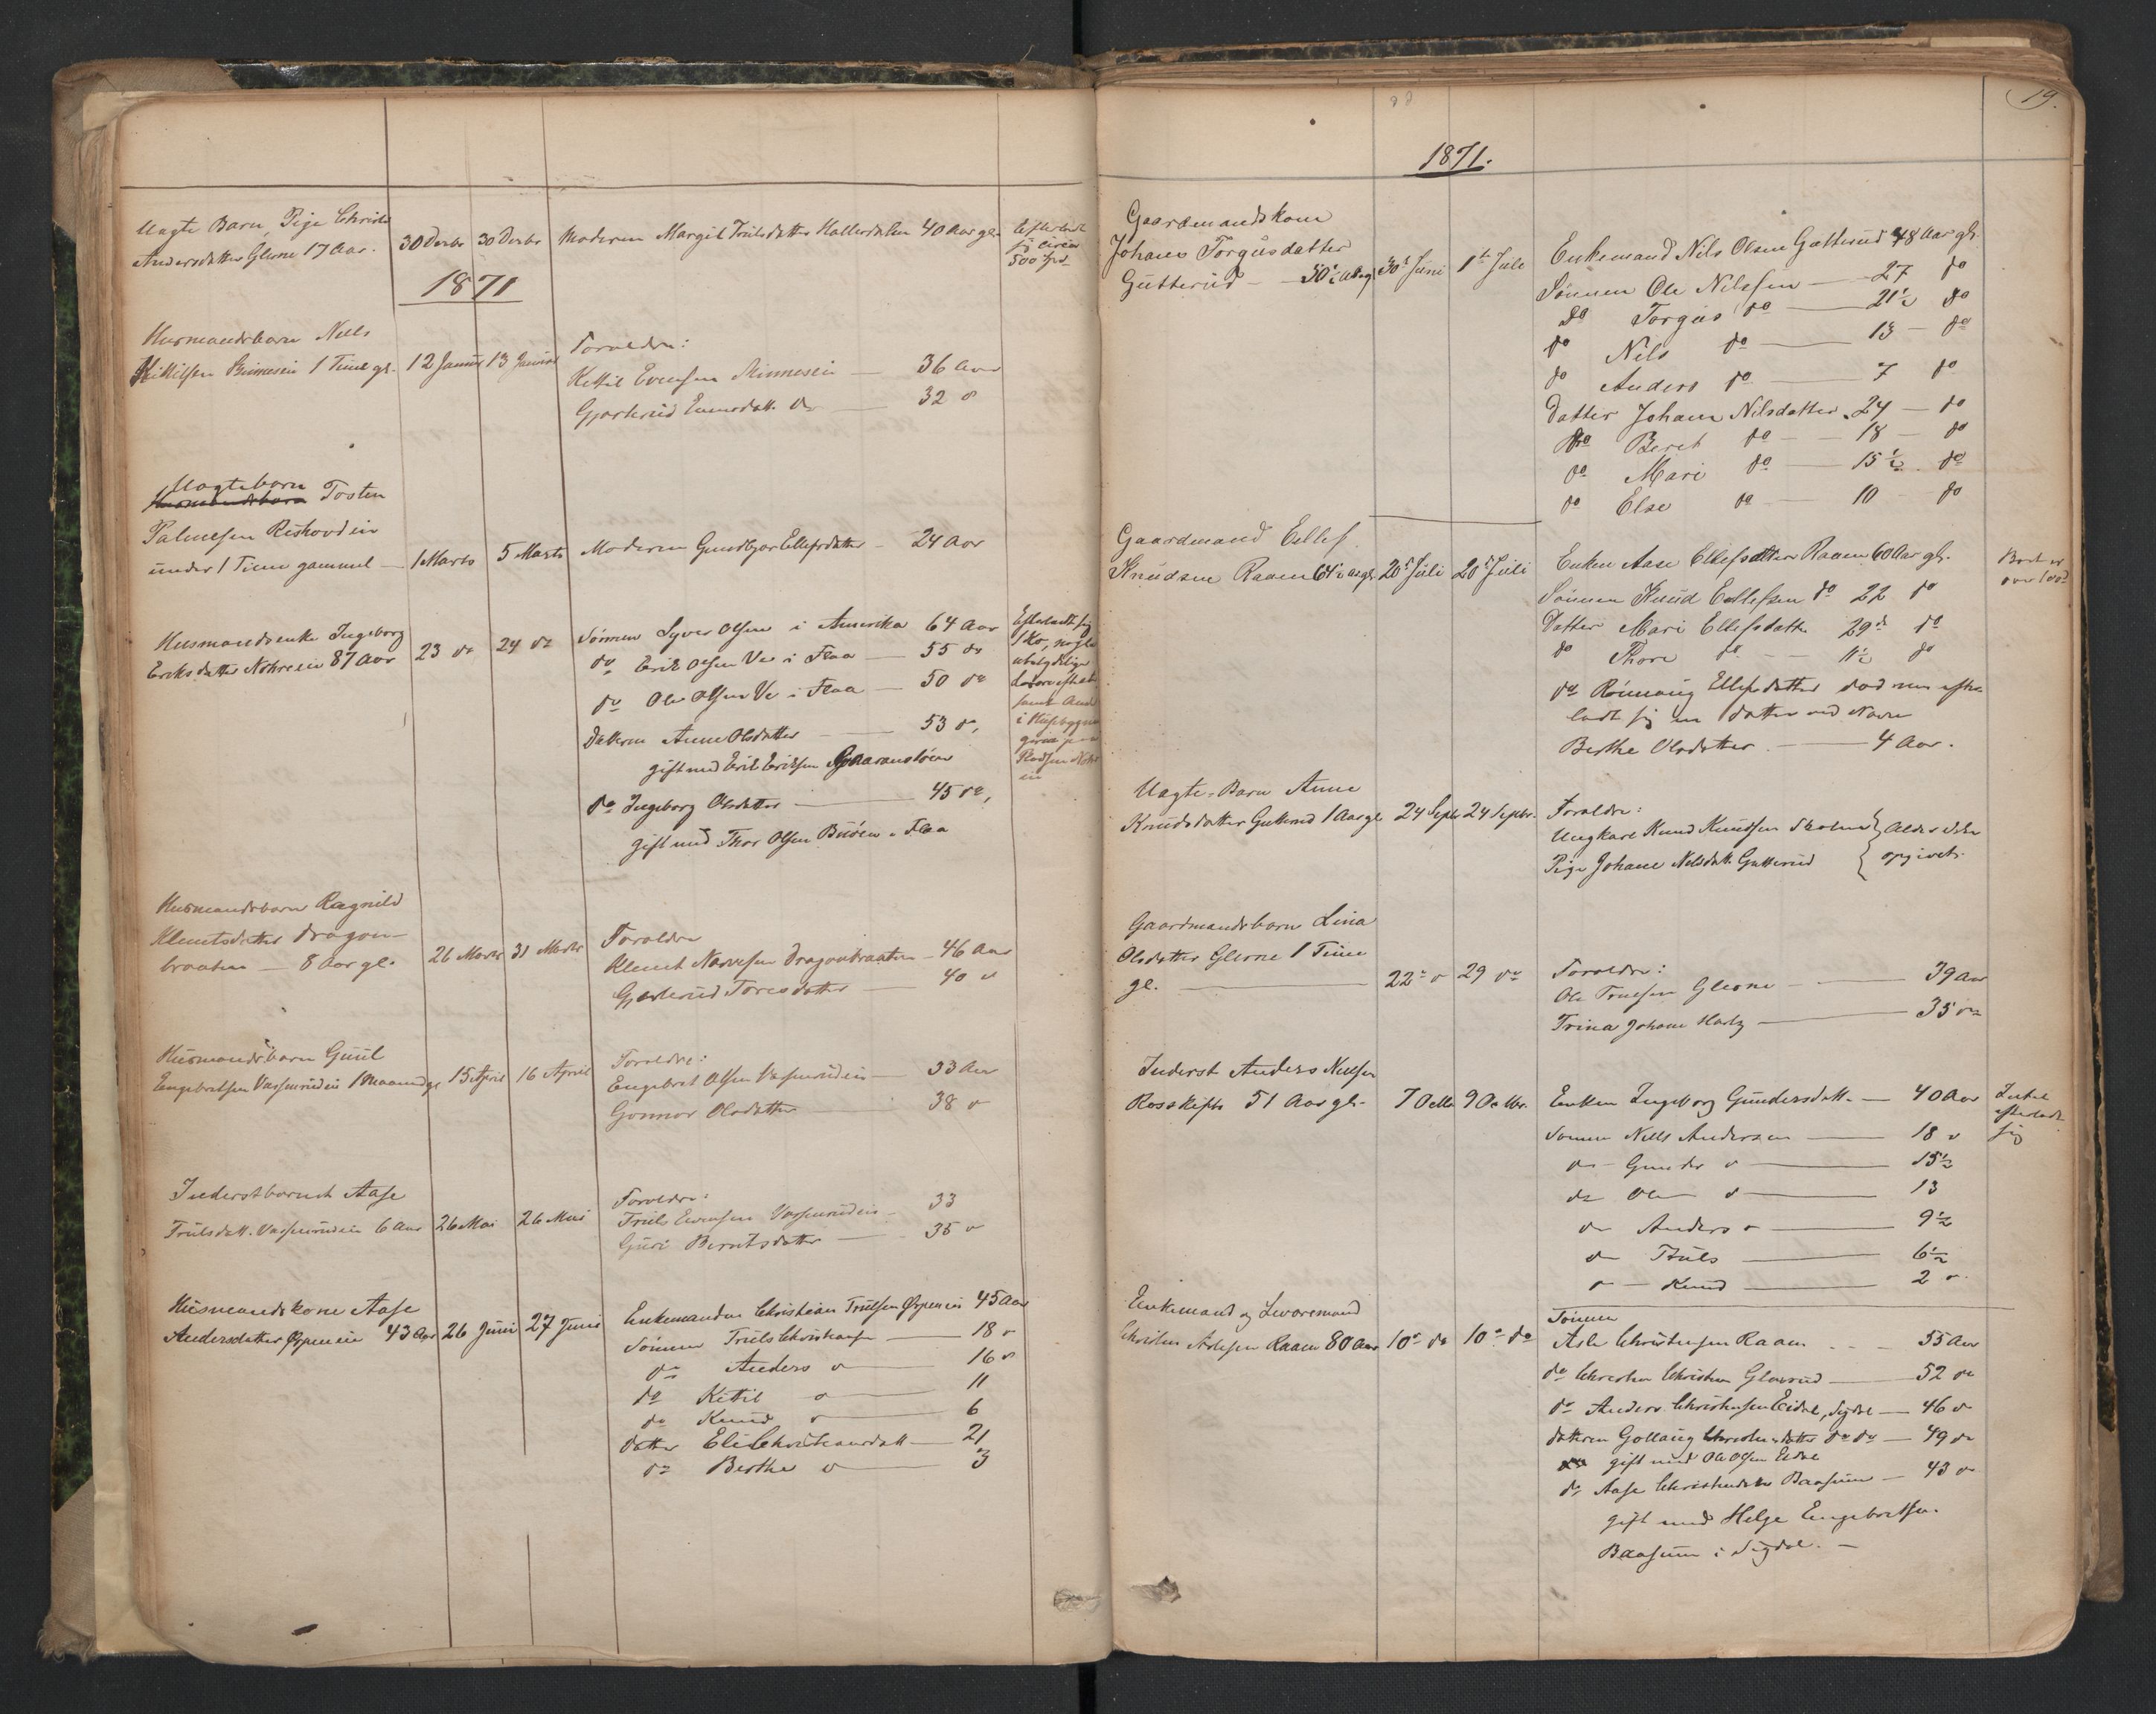 Uægte Barn, Pige Christi
Andersdatter Glesne 17 Aar. 30 Decbr 30 Decbr Moderen Margit Trulsdatter Hallerdalen 40 Aar gl. Efterladt
sig circa
500 Spd
1871
Husmandsbarn Nils
Kittilsen 1 Time gl. 12 Januar 13 Januar Foreldre:
Kittil Evensen 36 Aar
Gjertrud Evensdatt. do 32 "
Uægtebarn
Husmandsbarn Tosten
Palmesen Reishovdein
under 1 Time gammel 1 Marts 5 Marts Moderen Gundbjør Ellefsdatter 24 Aar
Husmandsenke Ingeborg
Eriksdatter 87 Aar 23 do 24 do Sønnen Syver Olsen i Amerika 64 Aar
do Erik Olsen Ve i Flaa 55 do
do Ole Olsen Ve i Flaa 50 do
Datteren Anne Olsdatter 53 do,
gift med Erik Eriksen
do Ingeborg Olsdatter 45 do,
gift med Thor Olsen i Flaa
Efterladt sig
1 Ko, nogle
ubetydelige
samt
i
Pladsen
Husmandsbarn Ragnild
Klemetsdatter Dragon-
braaten 8 Aar gl. 26 Marts 31 Marts Foreldre
Klemet Narvesen Dragonbraaten 46 Aar
Gjertrud Toresdatter 40 "
Husmandsbarn Guul
Engebretsen Vassendrudein 1 Maaned gl 15 April 16 April Foreldre:
Engebret Olsen 33 Aar
Gonnor Olsdatter 38 "
Inderstbarnet Aase
Trulsdatt. 6 Aar 26 Mai 26 Mai Foreldre:
Truls Evensen 33
Guri Berntsdatter 35 "
Husmandskone Aase
Andersdatter 43 Aar 26 Juni 27 Juni Enkemanden Christian Trulsen 45 Aar
Sønnen Truls Christiansen 18 "
do Anders " 16 "
do Kittil " 11
do Knud " 6
Datter Eli Christiansdatt 21
do Berthe " 3
19.
1871.
Gaardmandskone
Johane Torgusdatter
Gutterud 50½ Aar gl 30te Juni 1te Juli Enkemand Nils Olsen Gutterud 48 Aar gl.
Sønnen Ole Nilssen 27 do
do Torgus do 21½ do
do Nils do 13 do
do Anders do 7 do
Datter Johane Nilsdatter 24 do
do Beret do 18 do
do Mari do 15½ do
do Else do 10 do
Gaardmand Ellef
Knudsen Raaen 64½ Aar gl 20de Juli 20de Juli Enken Aase Ellefsdatter Raaen 60 Aar gl.
Sønnen Knud Ellefsen do 22 do
Datter Mari Ellefsdatter 29 do
do Thore do 11½ do
do Rønnaug Ellefsdatter død men efter-
ladt sig en Datter ved Navn
Berthe Olsdatter 4 Aar.
Boet er
over 100 Spd
Uægte-Barn Anne
Knudsdatter Gutterud 1 Aar gl 24 Septbr 24 Septbr. Foreldre:
Ungkarl Knud Knudsen Alder ikke
Pige Johane Nilsdatt. Gutterud opgivet.
Gaardmandsbarn Lina
Olsdatter Glesne 1 Time
gl. 22de " 29 do Foreldre:
Ole Truesen Glesne 39 Aar
Trina Johane 35 do
Inderst Anders Nilsen
Rosskift 51 Aar gl. 7 Octbr 9 Octbr. Enken Ingeborg Gundersdatt. 40 Aar
Sønnen Nils Andersen 18 "
do Gunder " 15½
do Ole " 13
do Anders " 9½
do Truls 6½
" Knud 2 "
Intet
efterladt
sig
Enkemand og
Christen Aslesen Raaen 80 Aar 10de do 10de do Sønnen
Asle Christensen Raaen 55 Aar
do Christen Christensen Glesrud 52 do
do Anders Christensen Eidal, Sigdal 46 "
Datteren Gollaug Christensdatter do do 49 do
gift med Ole Olsen Eidal
do Aase Christensdatter Baasum 43 do
gift med Helge Engebretsen
Baasum i Sigdal.